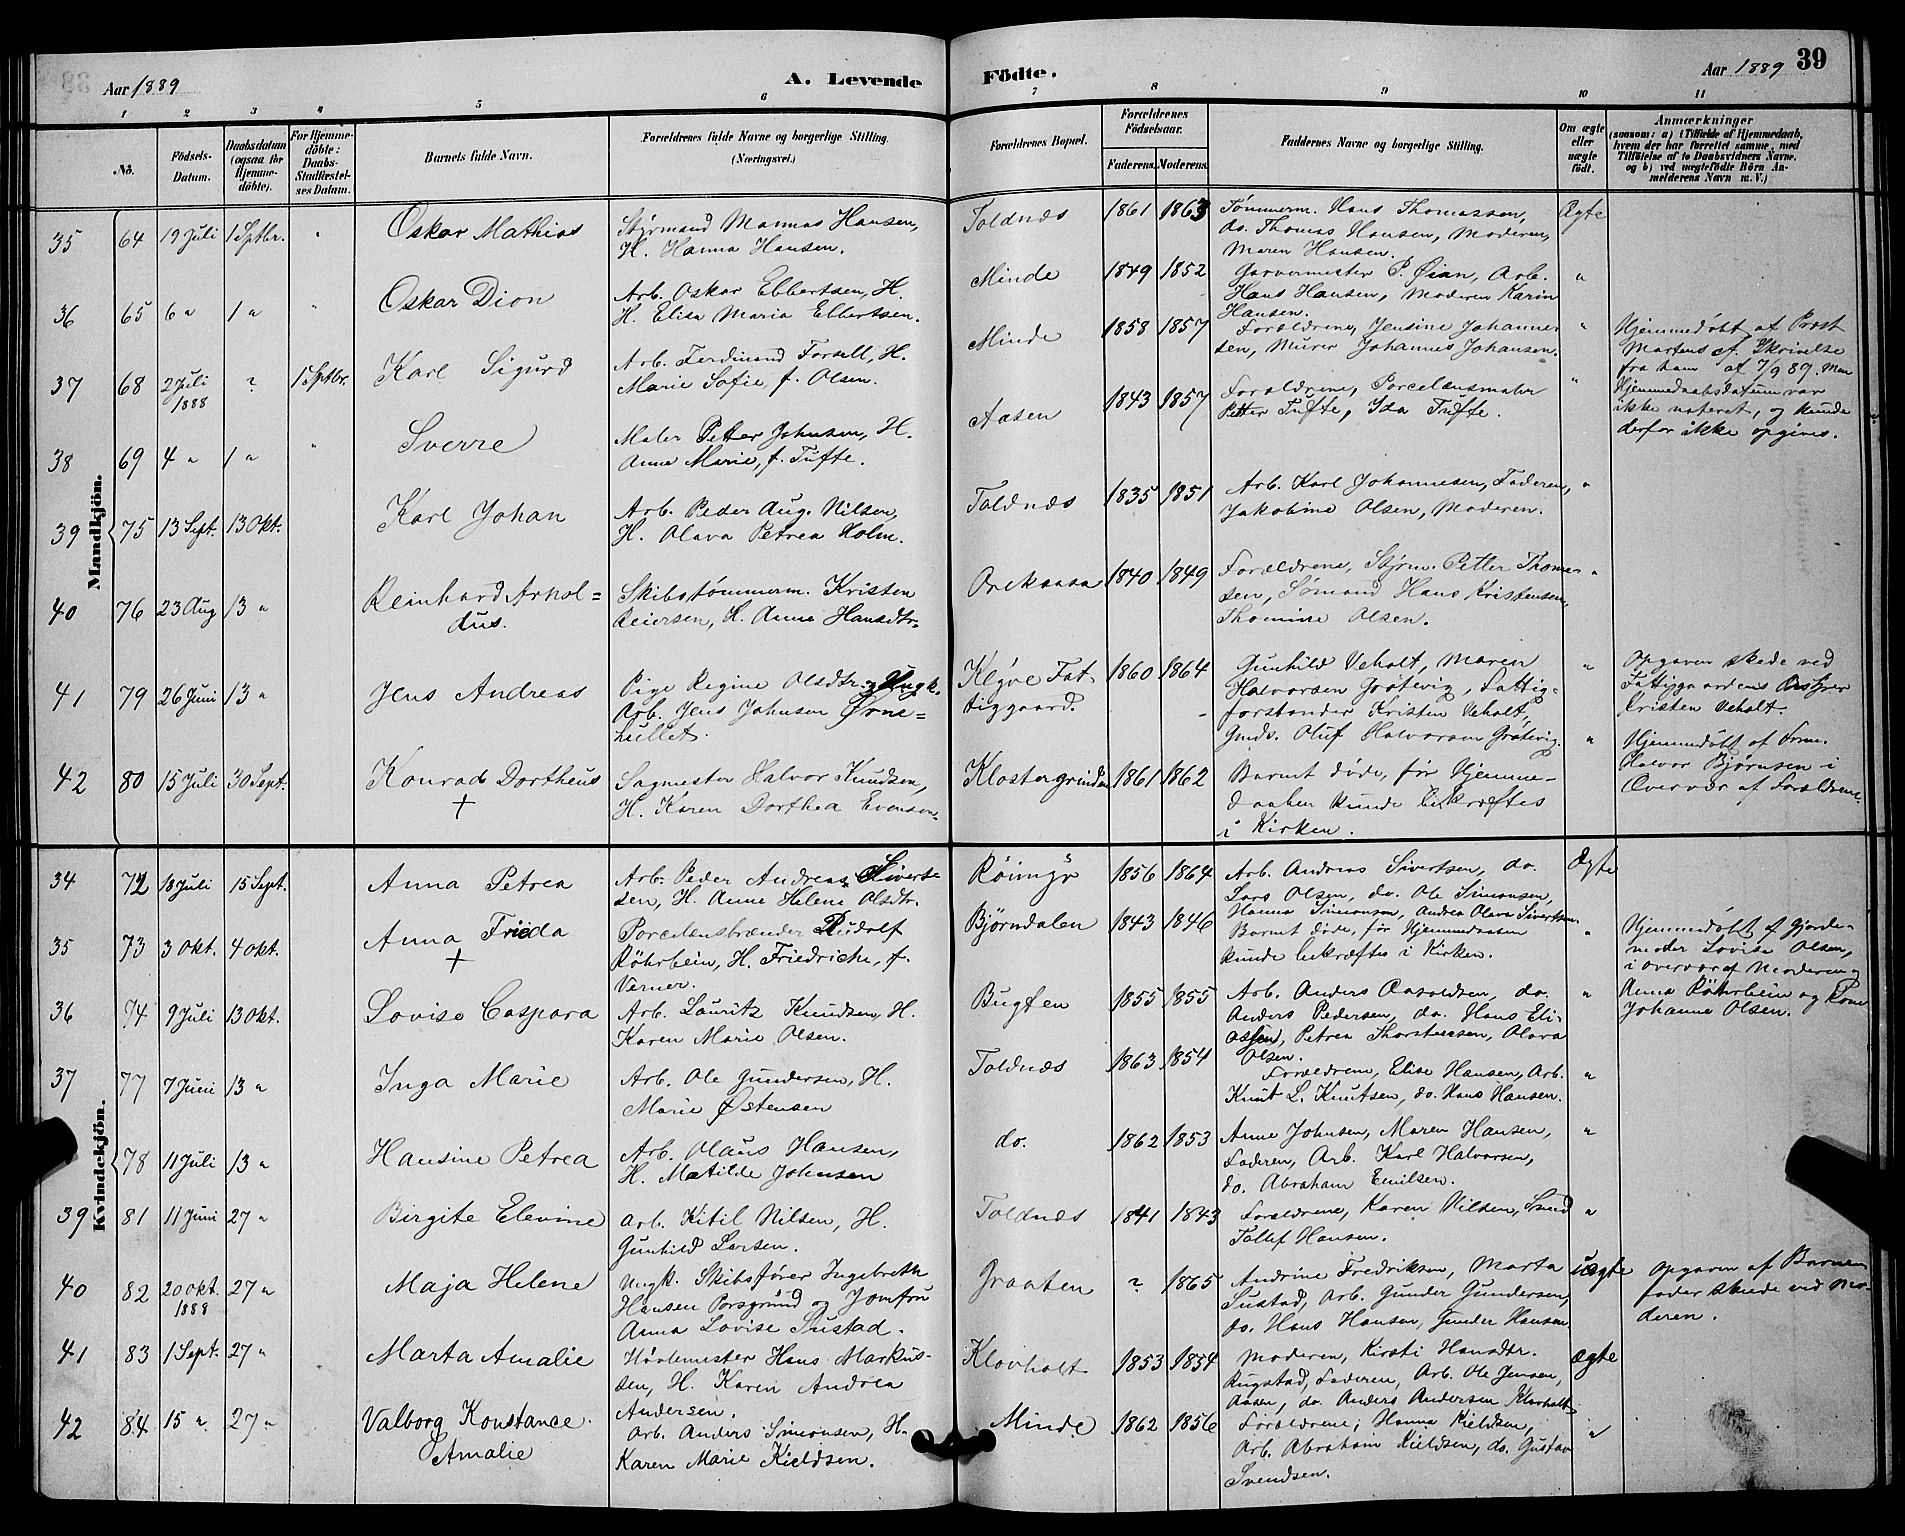 Aar 1889
A. Levende
Födte.
Aar 1889
39
1 2 3 4 5 6 7 8 9 10 11
No.
Födsels-Datum.
Daabsdatum (ogsaa for Hjemmedöbte).
For Hjemmedöbte: Daabs-Stadfæstelses Datum.
Barnets fulde Navn.
Forældrenes fulde Navne og borgerlige Stilling. (Næringsvei.)
Forældrenes Bopæl.
Forældrenes Födselsaar.
Faderens. Moderens.
Faddernes Navne og borgerlige Stilling.
Om ægte eller uægte födt.
Anmærkninger
(saasom: a) i Tilfælde af Hjemmedaab, hvem der har forrettet samme, med Tilföielse af to Daabsvidners Navne, og b) ved uægtefödte Börn Anmelderens Navn m. V.)
Mandkjön.
35 64 19 Juli 1 Sptbr. " Oskar Mathias
Stýrmand Mannas Hansen,
H. Hanna Hansen.
Toldnæs 1861 1863
Tømmerm. Hans Thomassen,
do. Thomas Hansen, Moderen,
Maren Hansen.
Ægte
36 65 6 " 1 " " Oskar Dion
Arb. Oskar Ebbertsen, H.
H. Elisa Maria Ebbertsen.
Minde 1849 1852
Garvermester P. Øian, Arb.
Hans Hansen, Moderen Karin
Hansen.
"
37 68 2 Juli 1888 ? 1 Sptbr. Karl Sigurd
Arb. Ferdinand Forsell, H.
Marie Sofie, f. Olsen.
Minde 1858 1857
Forældrene, Jensine Johannes-
sen, Murer Johannes Johansen.
"
Hjemmedøbt af Præst
Martens cf. Skrivelse
fra ham af 7/9 89. Men
Hjemmedaabsdatum var
ikke noteret, og kunde
derfor ikke opgives.
38 69 4 " 1 " " Sverre
Maler Petter Johnsen, H.
Anne Marie, f. Tufte.
Aasen 1843 1857
Forældrene, Porcelænsmaler
Petter Tufte, Ida Tufte.
"
39 75 13 Sept. 13 Okt. Karl Johan
Arb. Peder Aug. Nilsen,
H. Olava Petrea Holm.
Toldnæs 1835 1851
Arb. Karl Johannesen, Faderen,
Jakobine Olsen, Moderen.
"
40 76 23 Aug 13 " Reinhard Arnol=
dus.
Skibstømmerm. Kristen
Reiersen, H. Anne Hansdtr.
Orekaasa 1840 1849
Forældrene, Stýrm. Petter Thomes-
sen, Sømand Hans Kristensen,
Thomine Olsen.
"
41 79 26 Juni 13 " Jens Andreas
Pige Regine Olsdtr. Ungk.
Arb. Jens Johnsen Ørne=
hullet.
Kløve Fat-
tiggaard. 1860 1864
Gunhild Veholt, Maren
Halvorsen Grøtevig, Fattig-
forstander Kristen Veholt,
Gmds. Oluf Halvorsen Grøtevig.
"
Opgaven skede ved
Fattiggaardens Bestyrer
Kristen Veholt.
42 80 15 Juli 30 Sept. Konrad Dortheus
+
Sagmester Halvor Knudsen,
H. Karen Dorthea Evensen.
Klostergrunden 1861 1862
Barnet døde, før Hjemme-
daaben kunde bekræftes
i Kirken.
"
Hjemmedøbt af Frm.
Halvor Bjørnsen i
Overvær af Forældrene.
Kvindekjön.
34 72 18 Juli 15 Sept. Anna Petrea
Arb. Peder Andreas Sivert-
sen, H. Anne Helene Olsdtr.
Röimýr 1856 1864
Arb. Andreas Sivertsen, do.
Lars Olsen, do. Ole Simonsen,
Hanna Simonsen, Andrea Olava Sivertsen.
Ægte
35 73 3 Okt. 4 Okt. Anna Frieda
+
Porcelænsbrænder Rudolf
Röhrbein, H. Friedriche, f.
Verner.
Bjørndalen 1843 1846
Barnet døde, før Hjemmedaaben
kunde bekræftes i Kirken.
"
Hjemmedøbt af Gjorde-
moder Lovise Olsen,
i Overvær af Moderen og
Anna Röhrbein og Kone
Johanne Olsen.
36 74 9 Juli 13 Okt. Lovise Caspara
Arb. Lauritz Knudsen, H.
Karen Marie Olsen.
Bugten 1855 1855
Arb. Anders Aasoldsen, do.
Anders Pedersen, do. Hans Eli-
assen, Petrea Thorstensen, Olava
Olsen.
"
37 77 7 Juni 13 " Inga Marie
Arb. Ole Gundersen, H.
Marie Østensen
Toldnæs 1863 1854
Forældrene, Elise Hansen, Arb.
Knut L. Knutsen, do. Hans Hansen.
"
78 11 Juli 13 " Hansine Petrea
Arb. Olaus Hansen,
H. Matilde Johnsen
do. 1862 1853
Anne Johnsen, Maren Hansen,
Faderen, Arb. Karl Halvorsen,
do. Abraham Emilsen.
"
39 81 11 Juni 27 " Birgite Elevine
Arb. Kitil Nilsen, H.
Gunhild Larsen.
Toldnæs 1841 1843
Forældrene, Karen Nilsen, Smed
Tollef Hansen.
"
40 82 20 Okt. 1888 27 " Maja Helene
Ungk. Skibsfører Ingebreth
Hansen Porsgrund og Jomfru
Anna Lovise Sustad.
Graaten ? 1865
Andrine Fredriksen, Marta
Sustad, Arb. Gunder Gundersen,
do. Hans Hansen, Gunder Hansen
Uægte
Opgaven af Barnets
fader skede ved Mo-
deren.
41 83 1 Sept. 27 " Marta Amalie
Høvlemester Hans Markus-
sen, H. Karen Andrea
Andersen.
Klovholt 1853 1854
Moderen, Kirsti Hansdtr.
Rugstad, Faderen, Arb. Ole Jensen,
Aasen, do. Anders Andersen Klovholt
Ægte
42 84 15 " 27 " Valborg Konstance
Amalie
Arb. Anders Simonsen, H.
Karen Marie Kieldsen.
Minde 1862 1856
Forældrene, Hanna Kieldsen,
Arb. Abraham Kieldsen, do. Gustav
Svendsen.
"